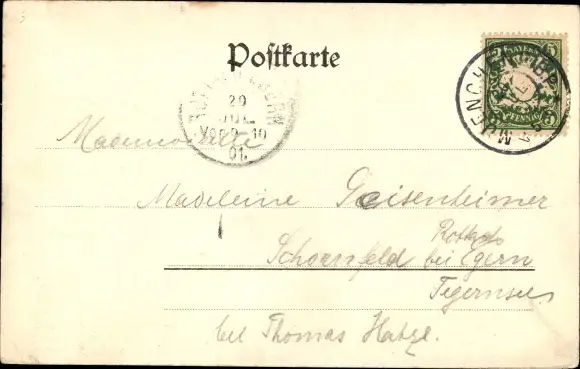 Postkarte
BAYERN
PFENNIG
5 5
MUENCHEN
20
JUL
VOR 9-10
01.
Mademoiselle
Madeleine Geisenheimer
Rottach
Schoenfeld bei Egern
Tegernsee
bei Thomas Hatzl.